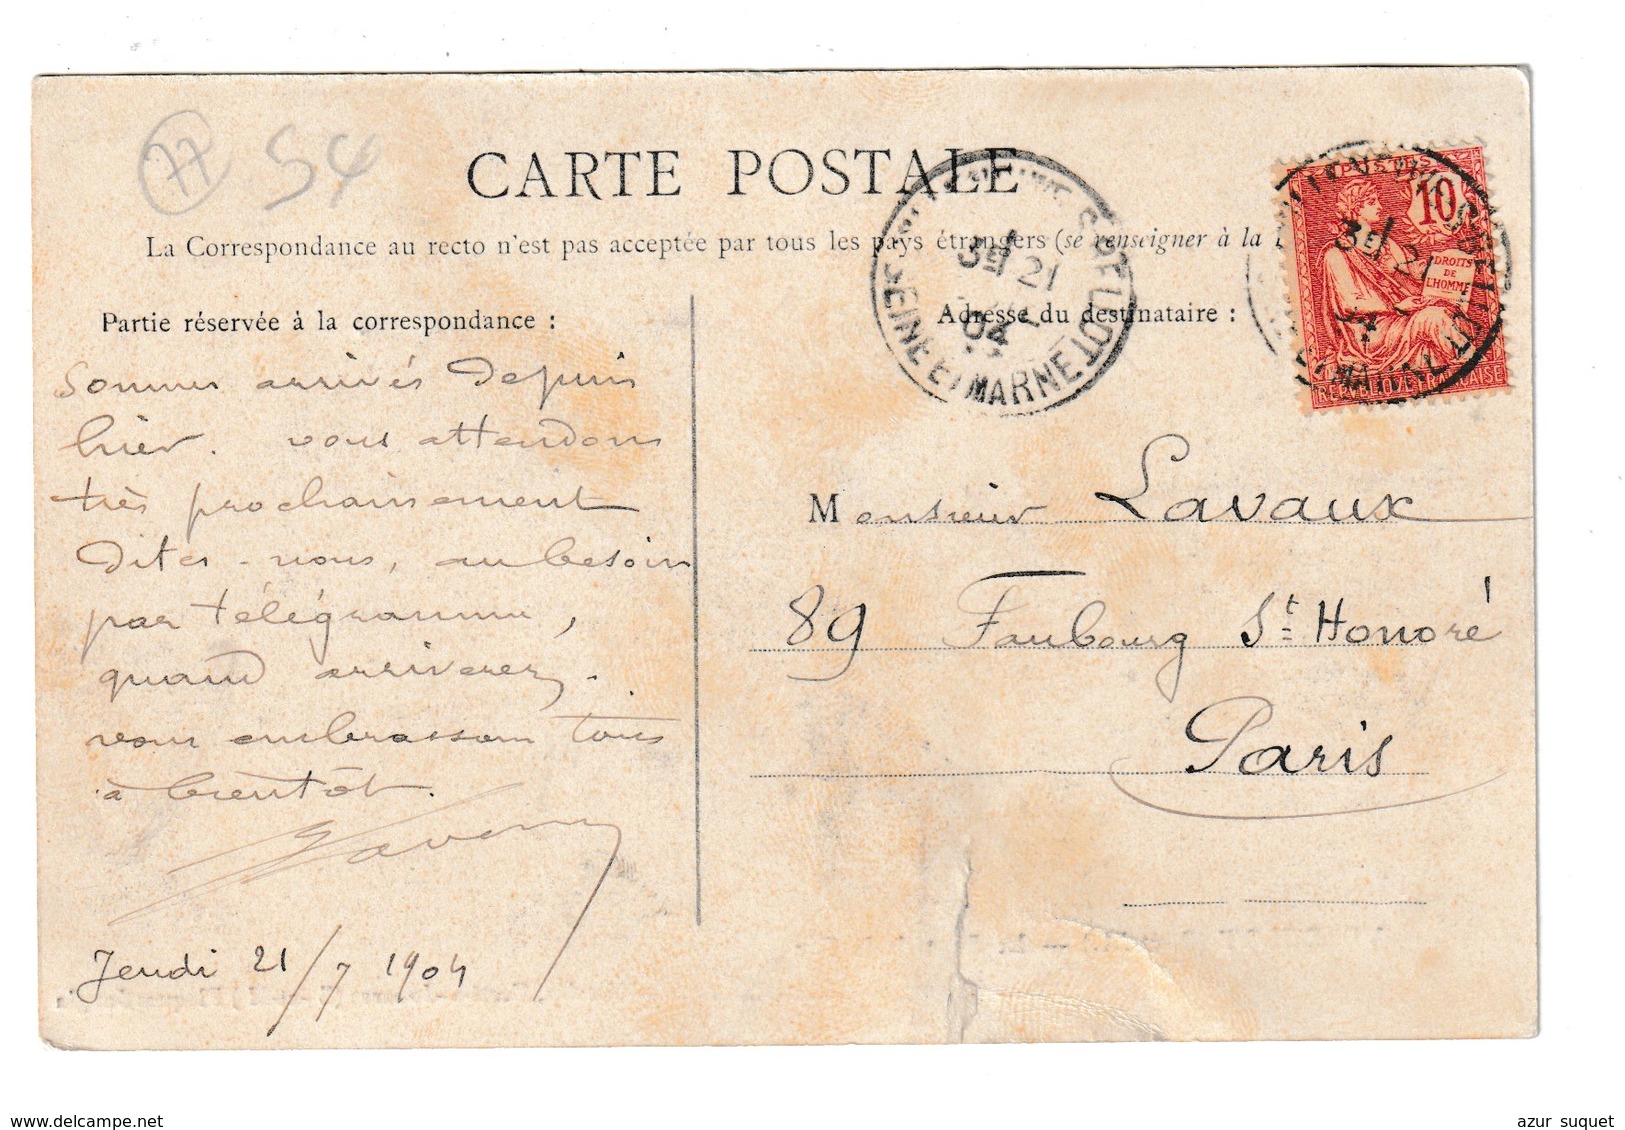 77 54
CARTE POSTALE
La Correspondance au recto n'est pas acceptée par tous les pays étrangers (se renseigner à la
Partie réservée à la correspondance :
Adresse du destinataire :
3E 21
04
SEINE ET MARNE
POSTES
10
DROITS
DE
L'HOMME
3E 21
REPUBLIQUE FRANÇAISE
Sommes arrivés depuis
hier. vous attendons
très prochainement
Dites-nous, au besoin
par télégramme,
quand arriverez.
vous embrassons tous
à bientôt.
Jeudi 21/7 1904
Monsieur Lavaux
89 Faubourg St Honoré
Paris
www.delcampe.net
azur suquet